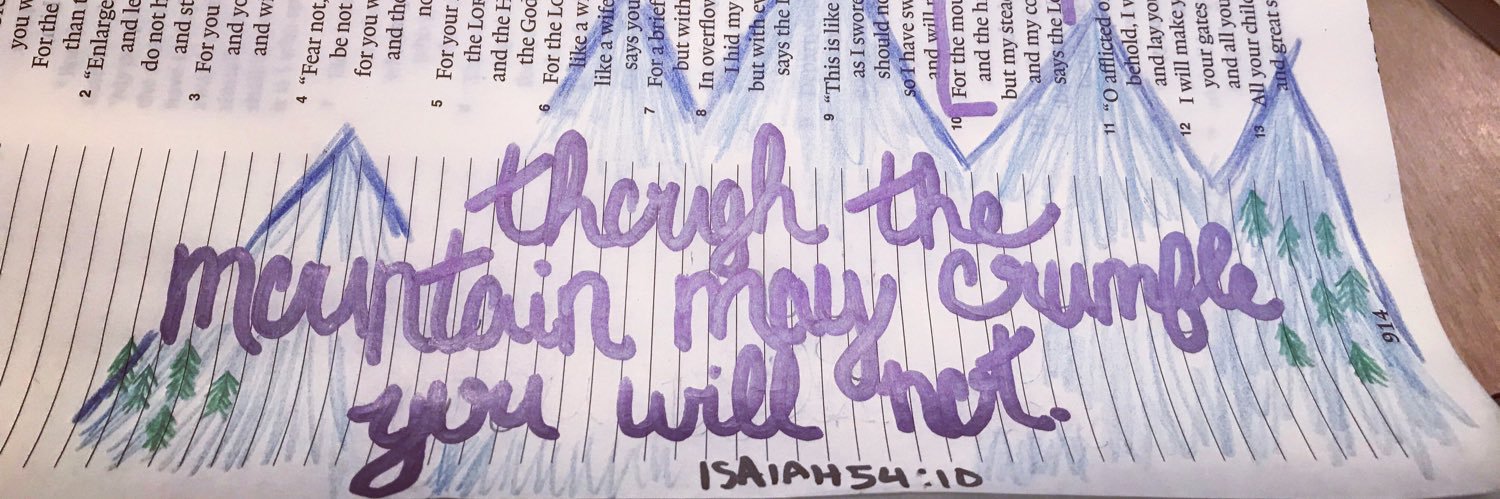 you w
For the
than t
2 "Enlarge
and le
do not h
and st
3 For you
and yo
and wi
4 "Fear not,
be not
for you w
and the
no
5 For your
the LORD
and the H
the God
6 For the Lo
like a wife
says you
7 For a brief
but with
8 In overflow
I hid my
but with ev
says the
9 "This is like
as I swore
should no
so I have sw
and will
10 For the mou
and the h
but my stea
and my co
says the Lo
11 "O afflicted o
behold, I w
and lay yo
12 I will make y
your gates
and all you
13 All your chil
and great s
914
though the
mountain may crumble
you will not.
ISAIAH 54:10